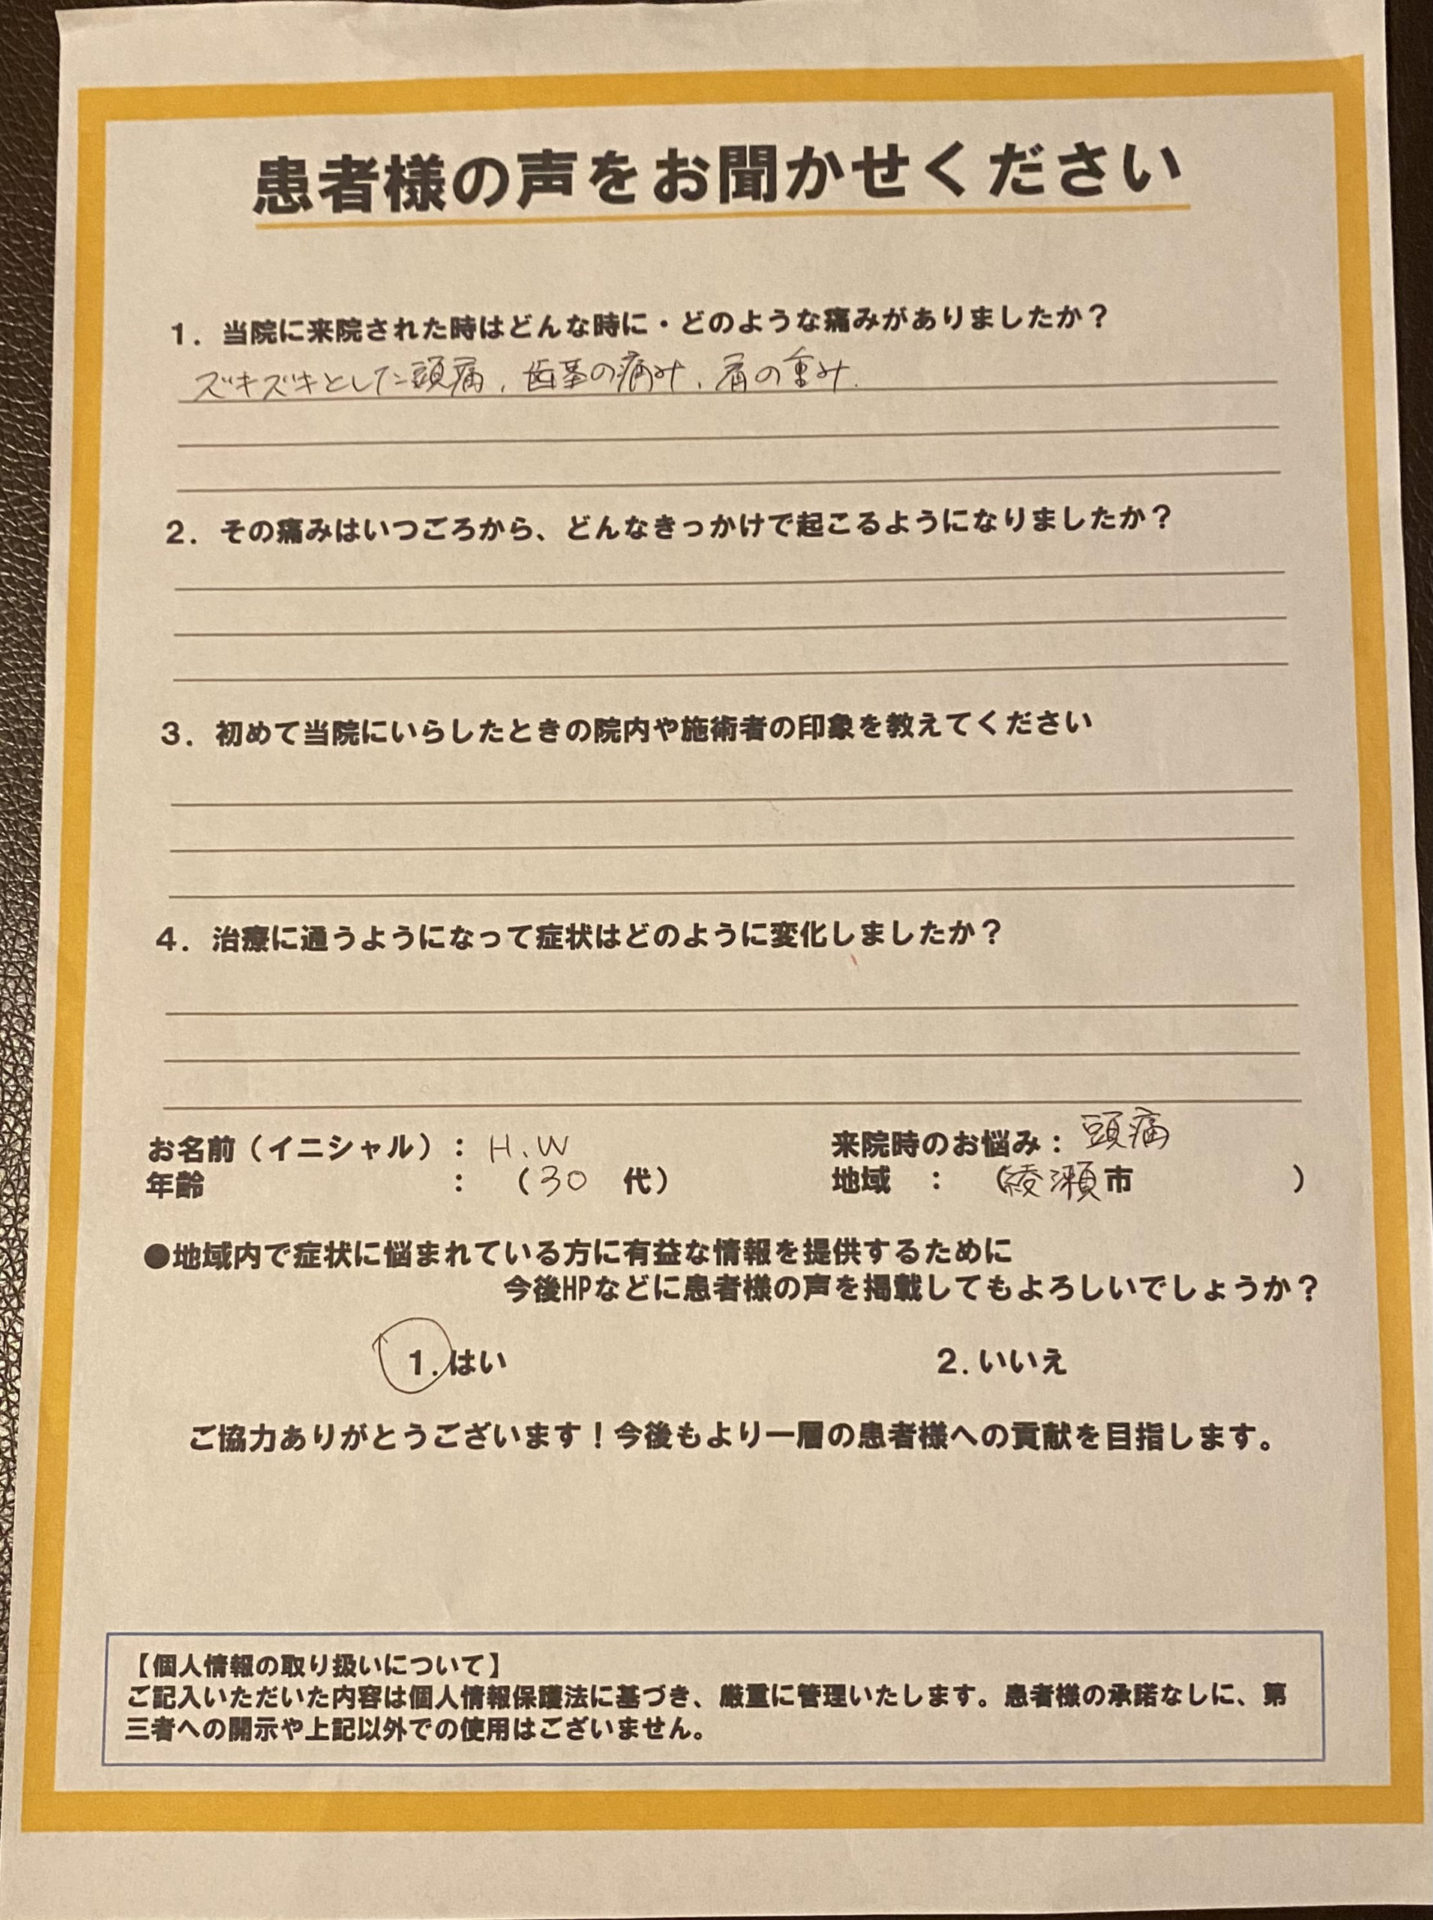 患者様の声をお聞かせください
1．当院に来院された時はどんな時に・どのような痛みがありましたか？
ズキズキとした頭痛、歯茎の痛み、肩の重み．
2．その痛みはいつごろから、どんなきっかけで起こるようになりましたか？
3．初めて当院にいらしたときの院内や施術者の印象を教えてください
4．治療に通うようになって症状はどのように変化しましたか？
お名前（イニシャル）： H.W 来院時のお悩み： 頭痛
年齢 ：（30 代） 地域 ：（綾瀬市 ）
●地域内で症状に悩まれている方に有益な情報を提供するために
今後HPなどに患者様の声を掲載してもよろしいでしょうか？
1.はい 2.いいえ
ご協力ありがとうございます！今後もより一層の患者様への貢献を目指します。
【個人情報の取り扱いについて】
ご記入いただいた内容は個人情報保護法に基づき、厳重に管理いたします。患者様の承諾なしに、第
三者への開示や上記以外での使用はございません。